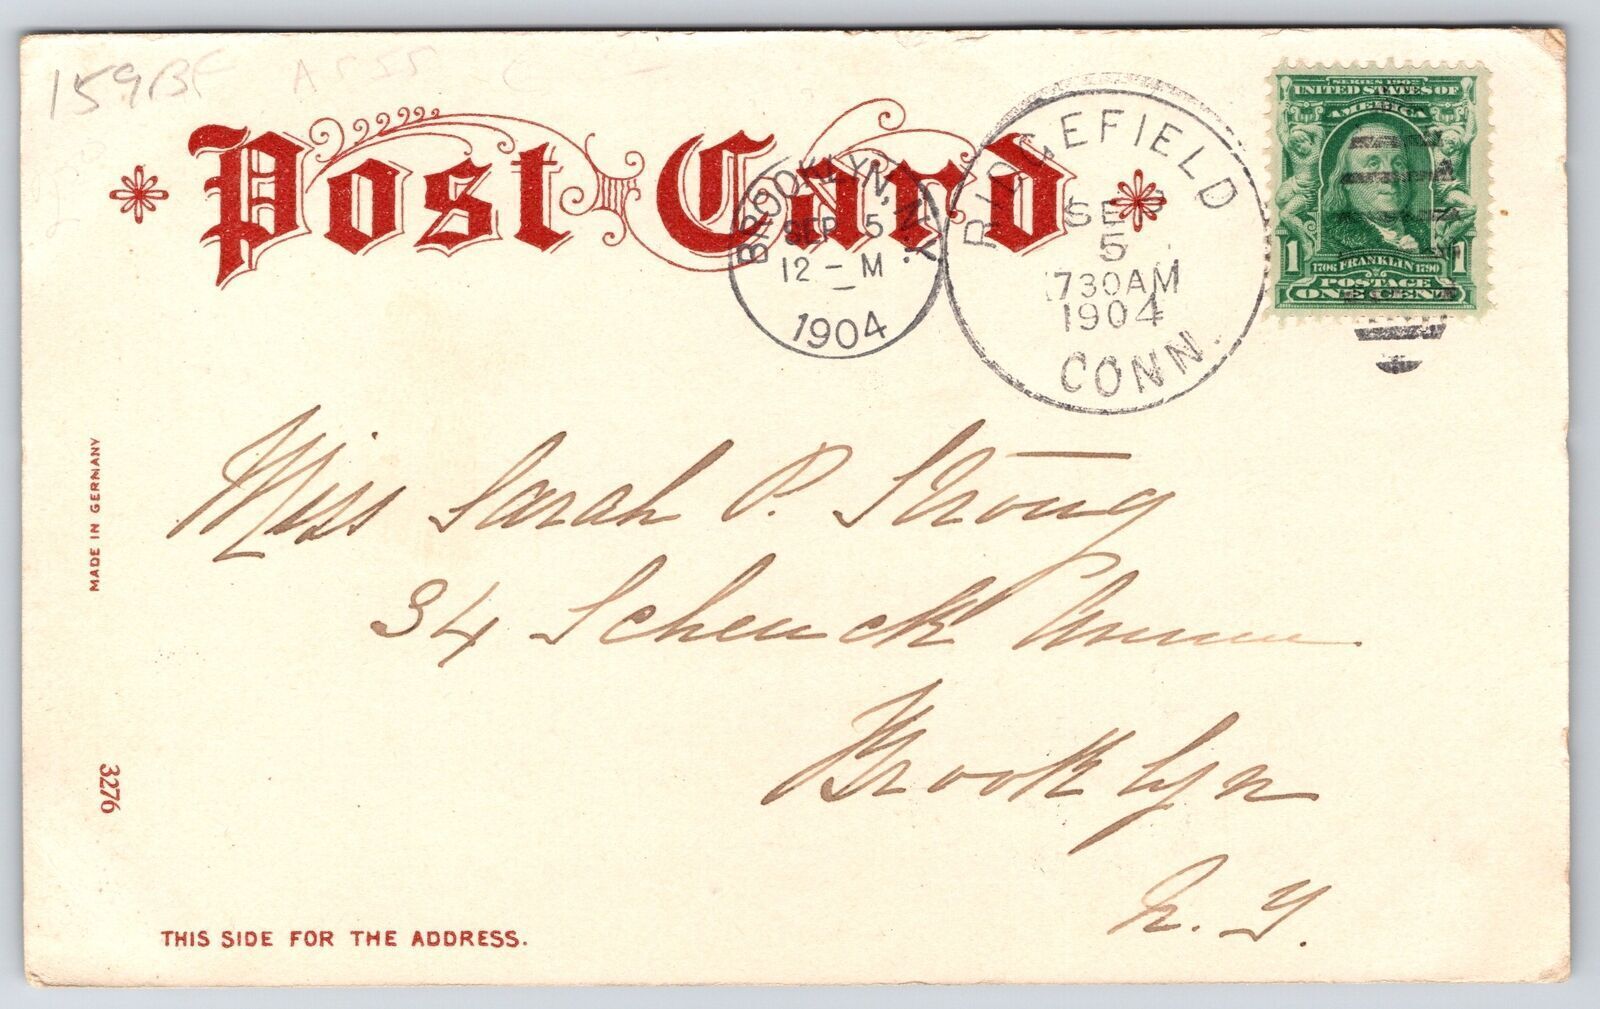 159BF
Post Card
BROOKLYN, N.Y.
SEP 5
12 - M
1904
RIDGEFIELD
SEP
5
730AM
1904
CONN.
SERIES 1902
UNITED STATES OF
AMERICA
1 1
1706 FRANKLIN 1790
POSTAGE
ONE CENT
Miss Sarah P. Strong
34 Schenck Avenue
Brooklyn
N. Y.
MADE IN GERMANY
3276
THIS SIDE FOR THE ADDRESS.